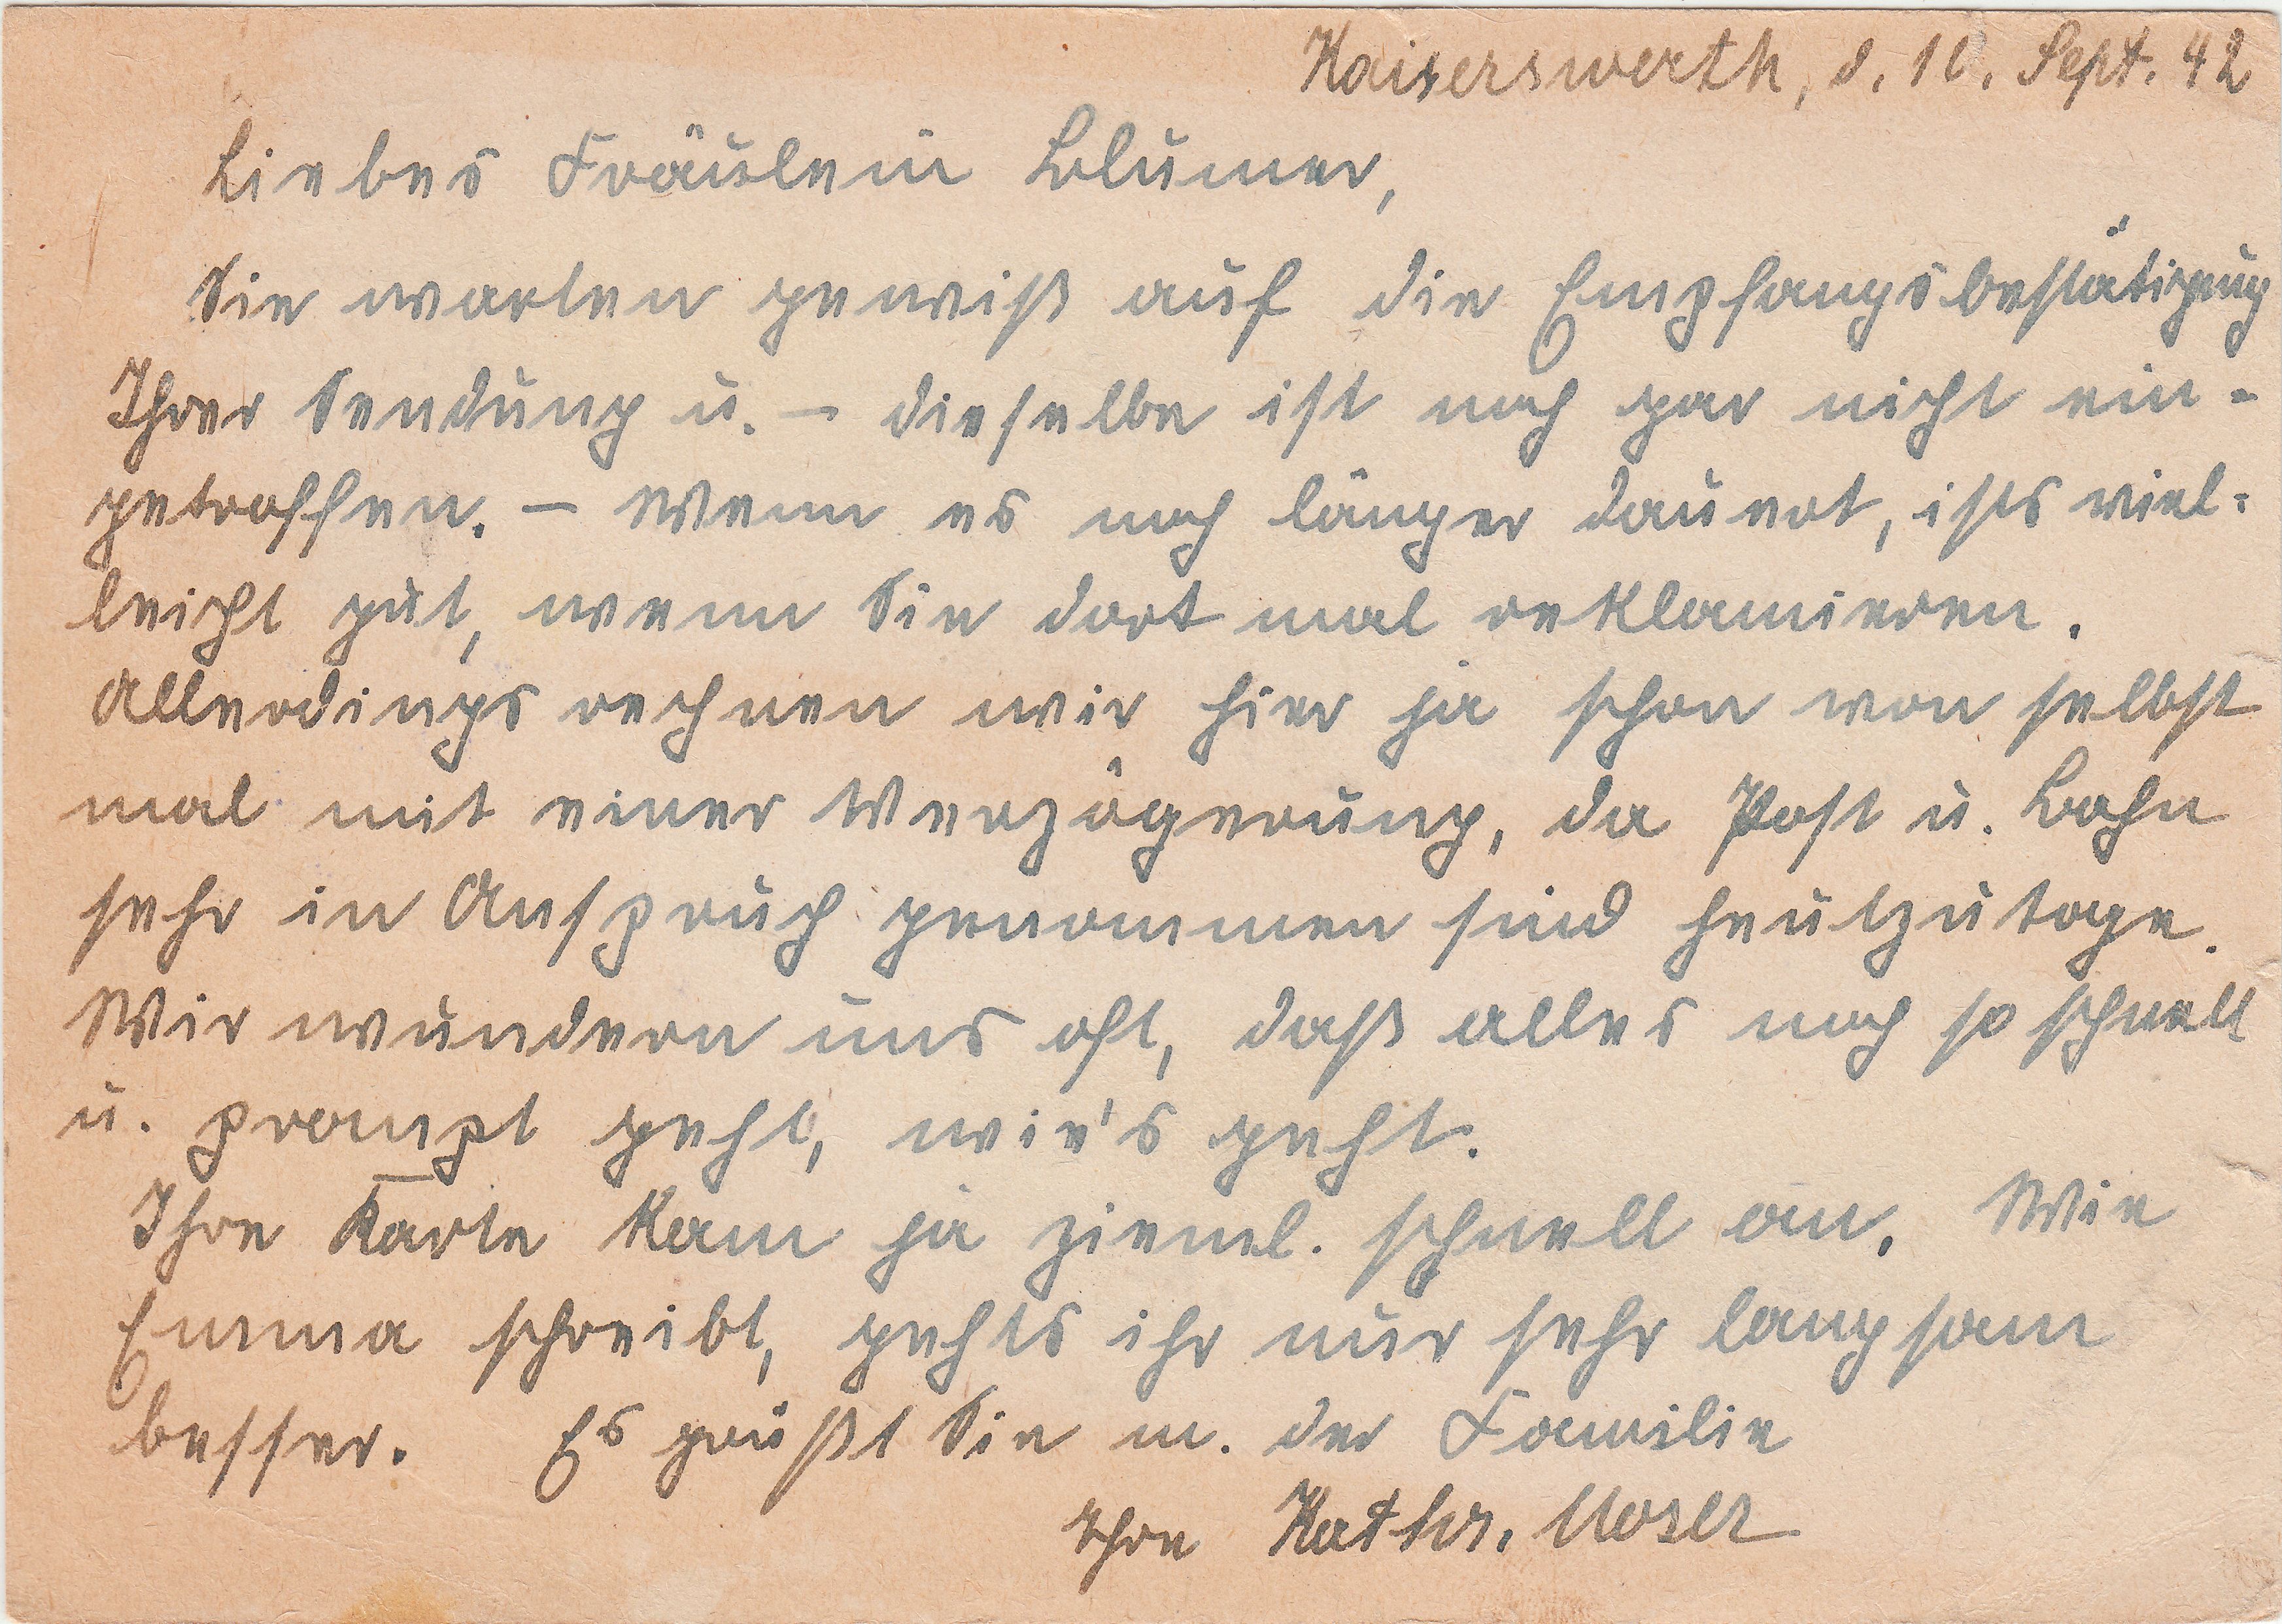 Kaiserswerth, d. 10. Sept. 42
Liebes Fräulein Blumer,
Sie warten gewiß auf die Empfangsbestätigung
Ihrer Sendung u. – dieselbe ist noch gar nicht ein-
getroffen. – Wenn es noch länger dauert, ists viel-
leicht gut, wenn Sie dort mal reklamieren.
Allerdings rechnen wir hier ja schon von selbst
mal mit einer Verzögerung, da Post u. Bahn
sehr in Anspruch genommen sind heutzutage.
Wir wundern uns oft, daß alles noch so schnell
u. prompt geht, wie's geht.
Ihre Karte kam ja zieml. schnell an. Wie
Emma schreibt, gehts ihr nur sehr langsam
besser. Es grüßt Sie m. der Familie
Ihre Kathr. Moser